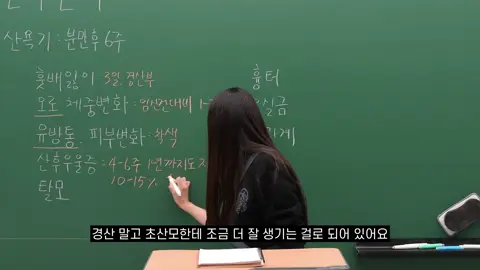 산욕기: 분만후 6주
훗배앓이 3일, 경산부
흉터
오로 체중변화: 임신전대비 1-
실금
유방통, 피부변화: 착색
산후우울증: 4-6주 1년까지도 지
탈모
10-15%
경산 말고 초산모한테 조금 더 잘 생기는 걸로 되어 있어요